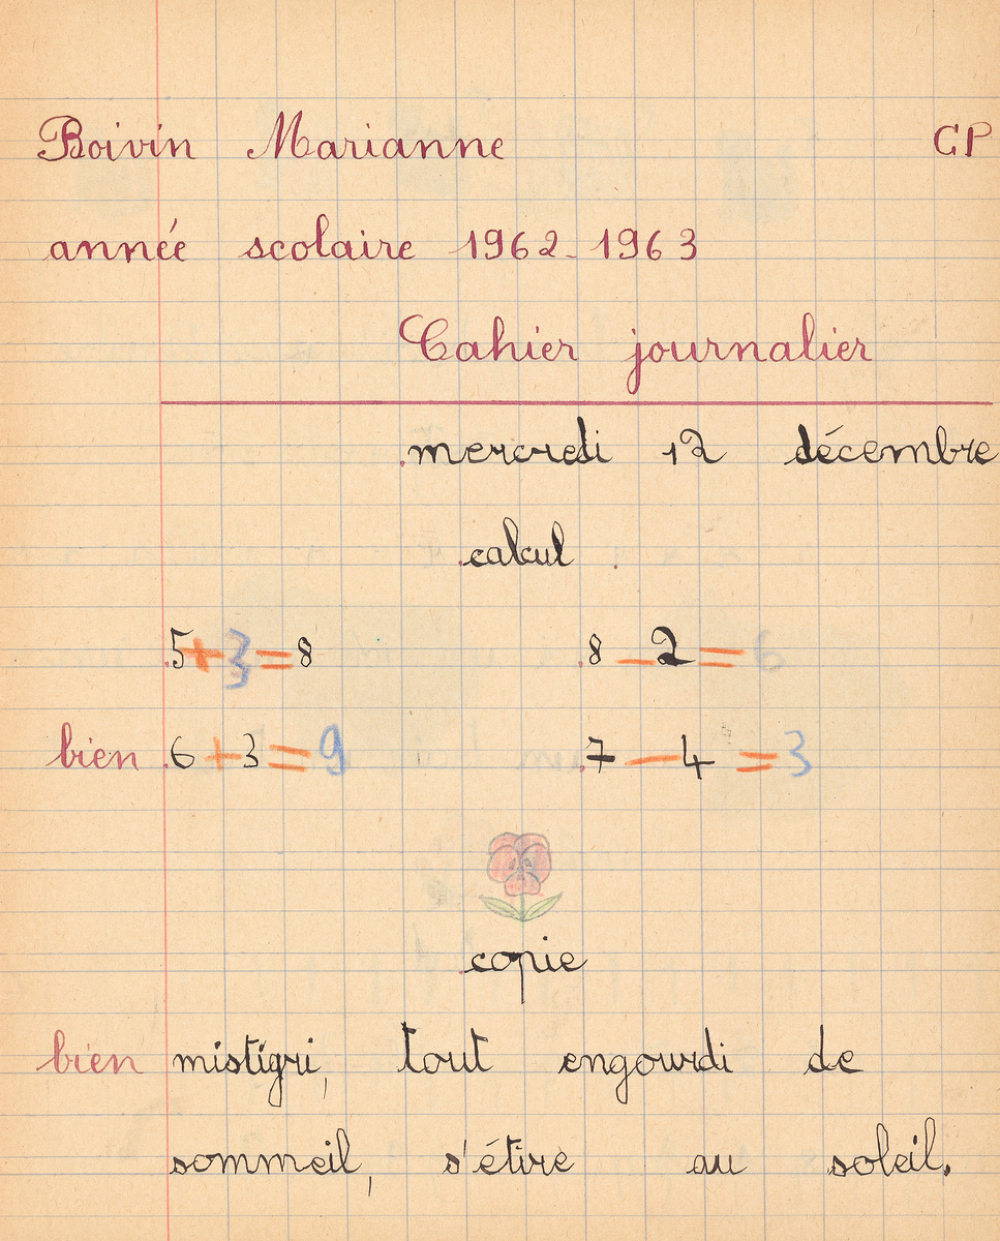 Boivin Marianne CP
année scolaire 1962-1963
Cahier journalier
mercredi 12 décembre
calcul
5+3=8 8-2=6
bien 6+3=9 7-4=3
copie
bien mistigri, tout engourdi de
sommeil, s'étire au soleil.